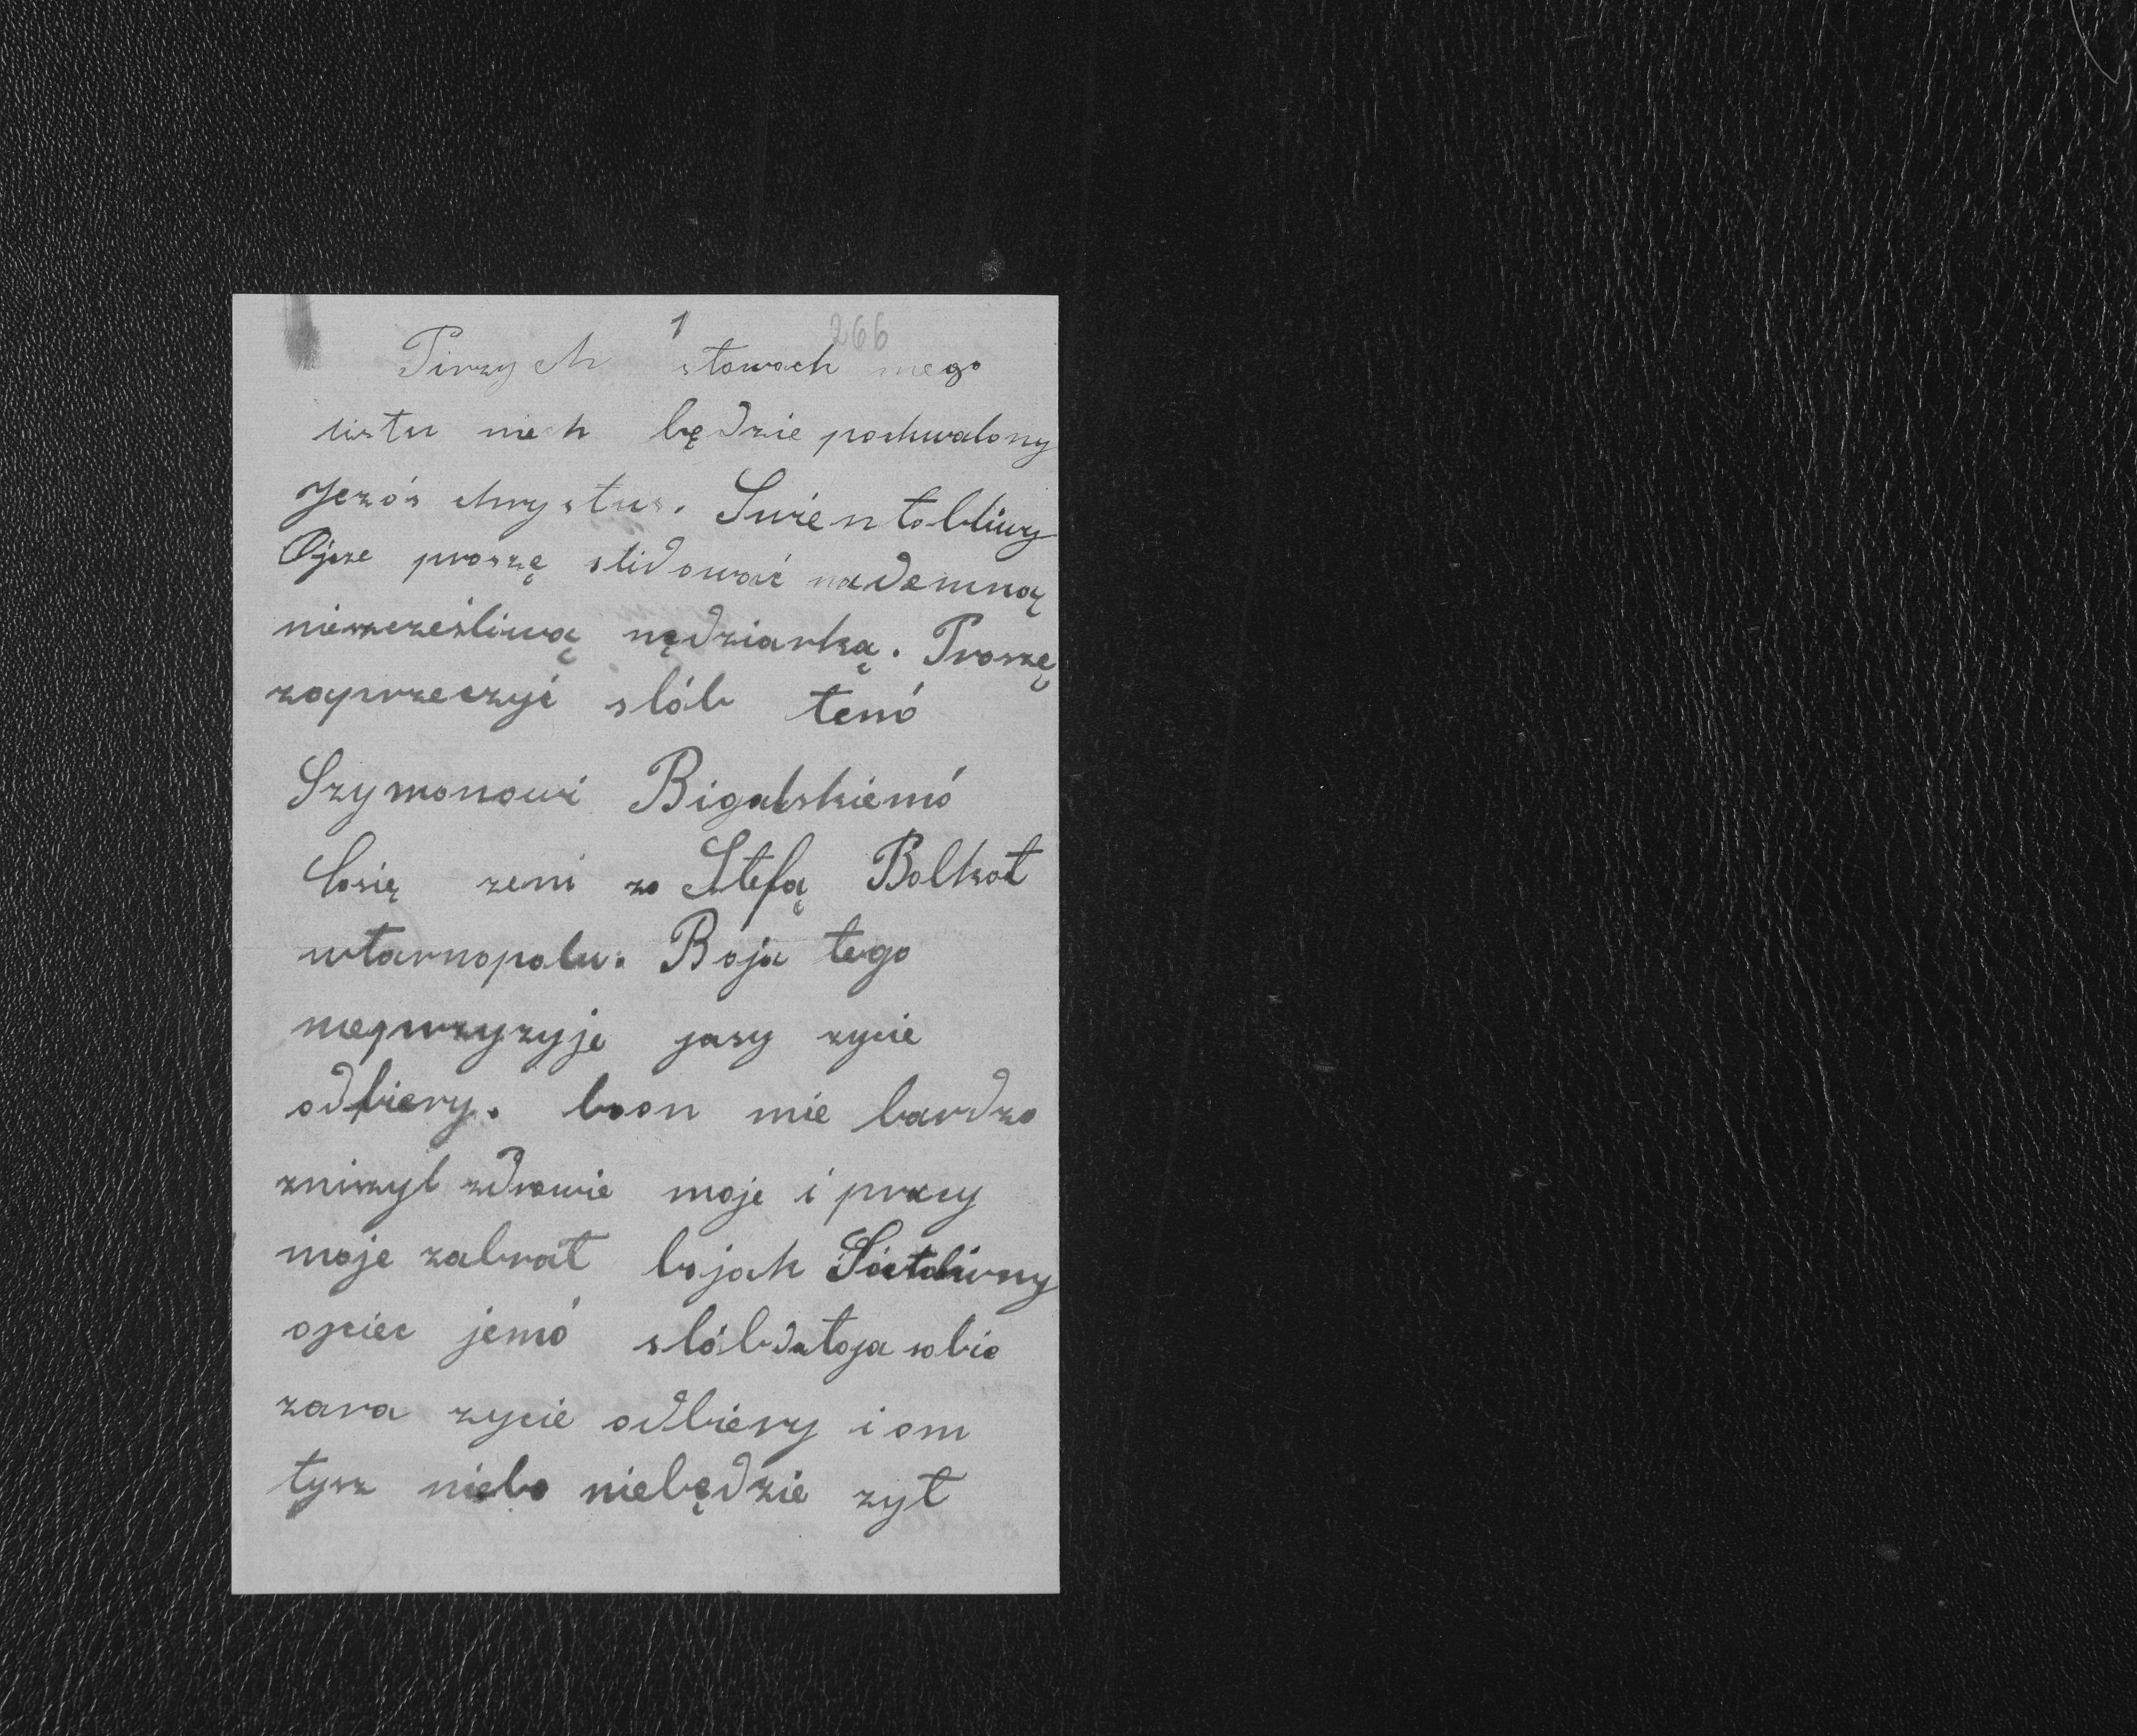 1
266
Pirzych słowach mego
listu niech będzie pochwalony
Jezós chrystus. Swientobliwy
Ojcze proszę slidować nademną
nieszcześliwą nędziarką. Proszę
zaprzeczyć slób temó
Szymonowi Bigalskiemó
Cosię zeni zo Stefą Bolkot
wtarnopolu. Boja tego
nieprzyzyje jasy zycie
odbiery. boon mie bardzo
zniszyl zdrowie moje i pracy
moje zabrat bojak
ojciec jemó slóbdatoja sobie
zara zycie odbiery i om
tysz niebo niebędzie zyt